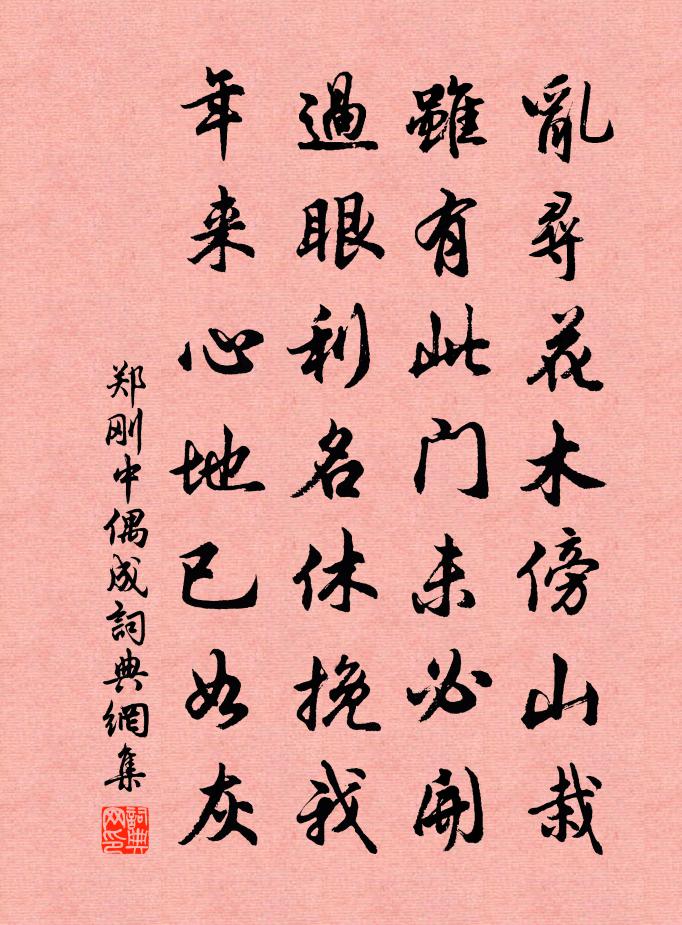 亂尋花木傍山栽
雖有此门未必開
過眼利名休挽我
年来心地已如灰
郑刚中偶成詞典網集
詞典网印